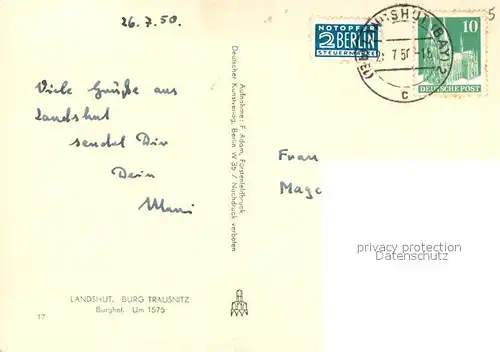 26.7.50.
NOTOPFER
2 BERLIN
STEUERMARKE
LANDSHUT (BAY) 2
7.50
c
10
DEUTSCHE POST
5
Viele Grüße aus
Landshut
sendet Dir
Dein
Mani
Aufnahme: F. Adam, Fürstenfeldbruck
Deutscher Kunstverlag, Berlin W 35 / Nachdruck verboten
Frau
Mage
privacy protection
Datenschutz
LANDSHUT. BURG TRAUSNITZ
Burghof. Um 1575
17